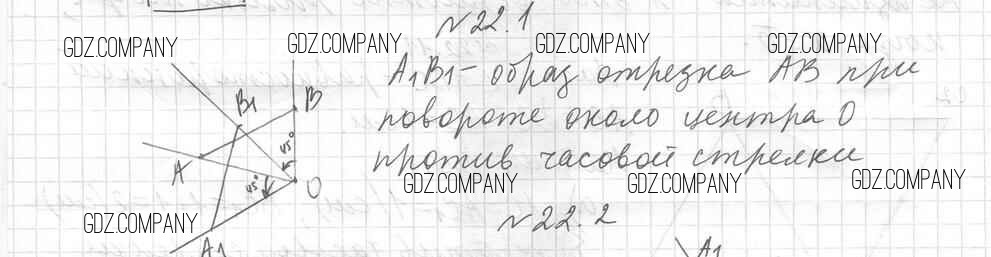 N 22.1
GDZ.COMPANY GDZ.COMPANY GDZ.COMPANY GDZ.COMPANY
A₁B₁ – образ отрезка AB при
повороте около центра O
против часовой стрелки
GDZ.COMPANY GDZ.COMPANY GDZ.COMPANY
B₁ B
45°
A
45° O
GDZ.COMPANY
A₁
N 22.2
A₁